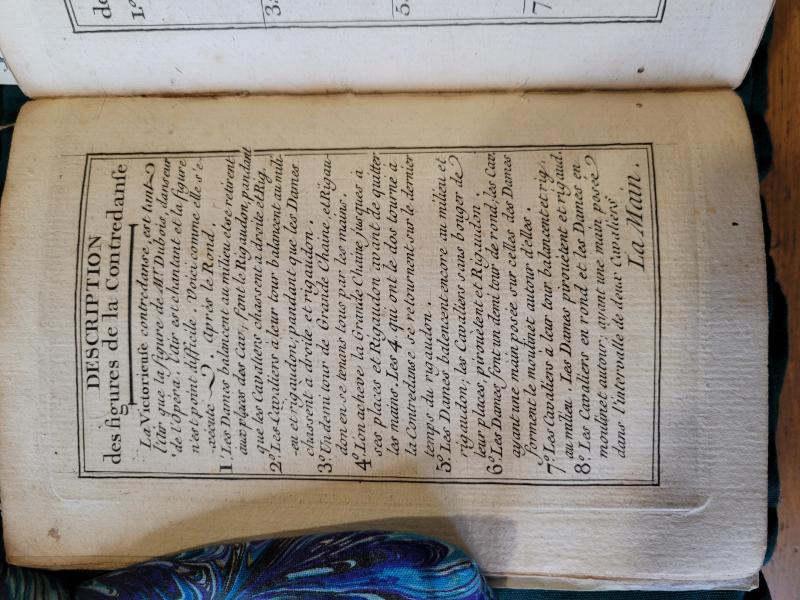 DESCRIPTION
des figures de la Contredanse
La Victorieuse contredanse, est tant
l'air que la figure de Mr. Dubois, danseur
de l'Opéra. l'air est chantant et la figure
n'est point difficile. Voici comme elle s'e-
xécute. après le Rond.
1 Les Dames balancent au milieu et se retirent
aux places des Cav; font le Rigaudon, pandant
que les Cavaliers chassent à droite et Rig.
2º Les Cavaliers à leur tour balancent au mili-
eu et rigaudon; pandant que les Dames
chassent a droite et rigaudon.
3º Un demi tour de Grande Chaine, et Rigau-
don en se tenans tous par les mains.
4º L'on acheve la Grande Chaine jusques à
ses places et Rigaudon avant de quitter
les mains. Les 4. qui ont le dos tourné a
la Contredanse se retournent sur le dernier
temps du rigaudon.
5º Les Dames balencent encore au milieu et
rigaudon; les Cavaliers sans bouger de
leurs places, pirouëtent et Rigaudon.
6º Les Dames font un demi tour de rond, les Cav.
ayant une main posée sur celles des Dames
forment le moulinet autour d'elles.
7º Les Cavaliers à leur tour balancent et rig.
au milieu. Les Dames pirouëtent et rigaud.
8º Les Cavaliers en rond et les Dames en
moulinet autour; ayant une main posée
dans l'intervalle de deux Cavaliers
La Main.